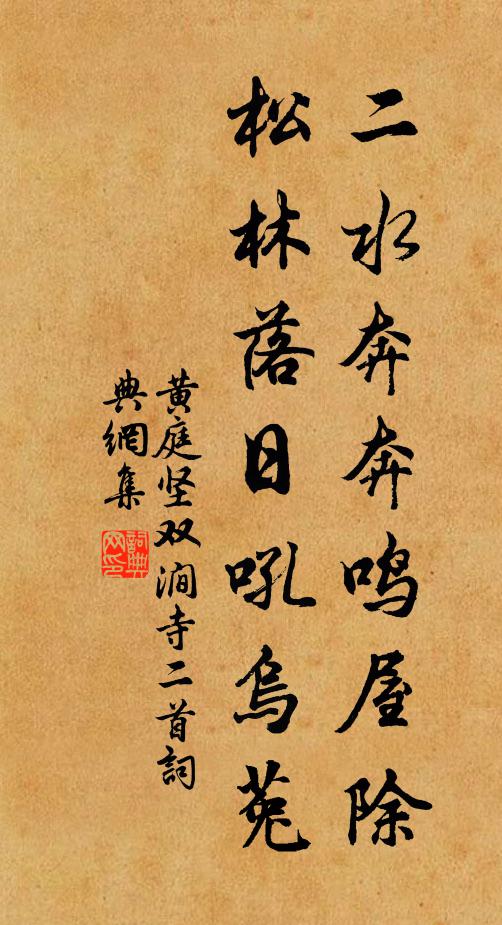 二水奔奔鸣屋除
松林落日吼乌菟
黄庭坚双涧寺二首詞
典網集
詞典网印